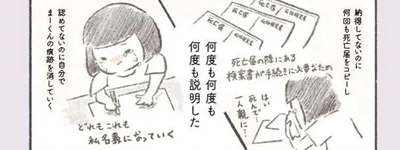 納得してないのに
何回も死亡届をコピーし
死亡届
死亡届
死亡届
死亡届の隣にある
検案書が手続きに必要なため
はい
死んで
一人親に…
何度も何度も
何度も説明した
認めてないのに自分で
まーくんの痕跡を消していく
どれもこれも
私名義になっていく